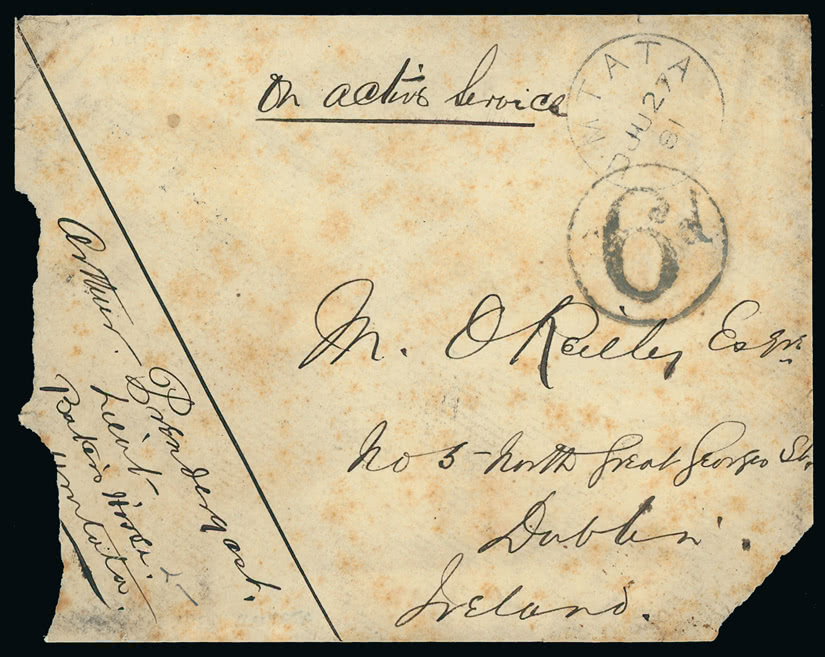 On active Service
UMTATA
JU 27
81
6d
M. O'Reilly Esqre
No 5 North Great Georges St.
Dublin
Ireland.
Arthur Prendergast.
Lieut
Bakers Horse.
Umtata.